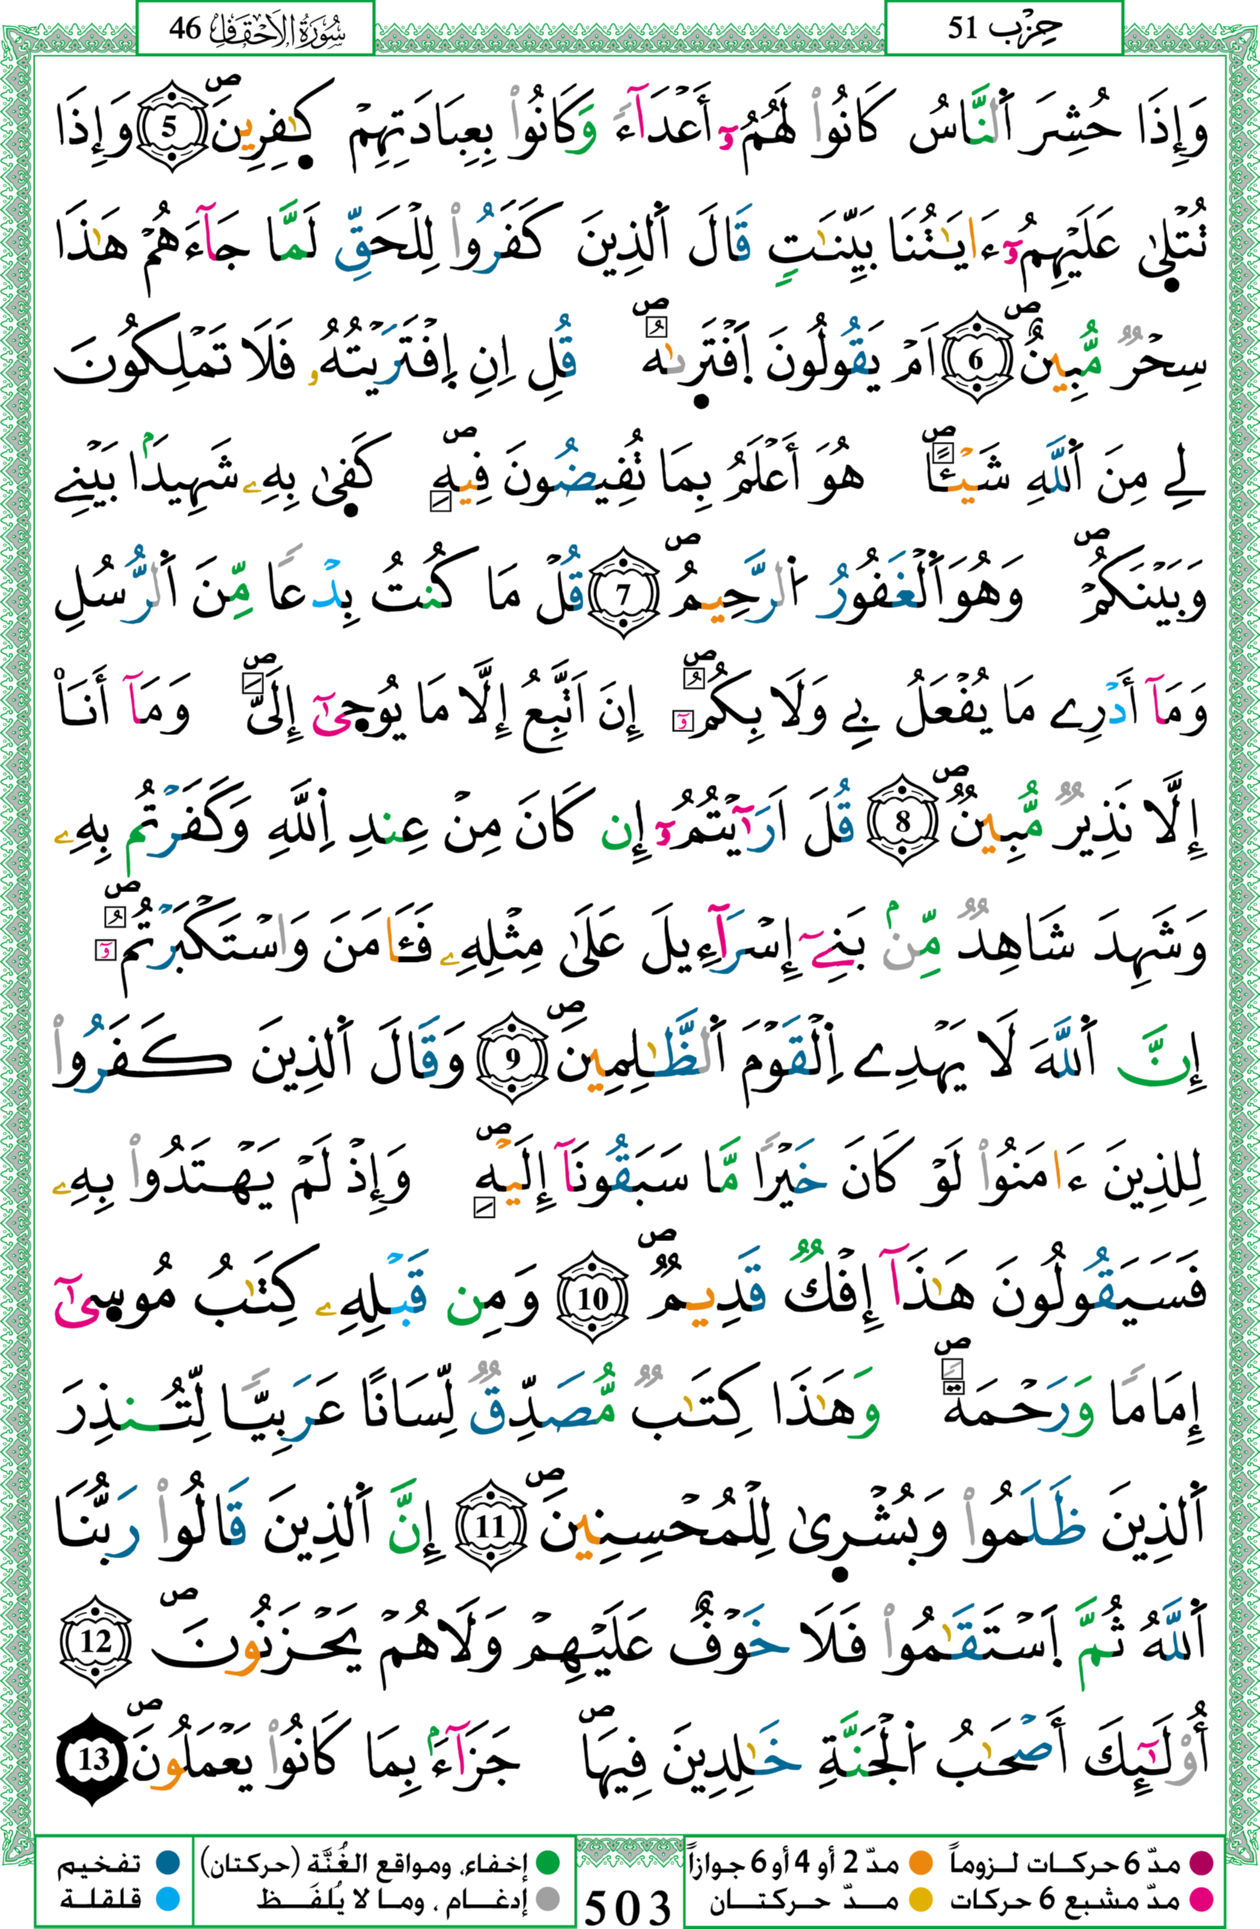 سُورَةُ الأَحْقَافِ 46
حِزْب 51
وَإِذَا حُشِرَ اَ۬لنَّاسُ كَانُواْ لَهُمُۥٓ أَعْدَآءٗ وَكَانُواْ بِعِبَادَتِهِمْ كٰ۪فِرِينَۖ 5 وَإِذَا
تُتْل۪يٰ عَلَيْهِمُۥٓ ءَايَٰتُنَا بَيِّنَٰتٖ قَالَ اَ۬لذِينَ كَفَرُواْ لِلْحَقِّ لَمَّا جَآءَهُمْ هَٰذَا
سِحْرٞ مُّبِينٌۖ 6 اَمْ يَقُولُونَ اَ۪فْتَر۪يٰهُۖ قُلِ اِنِ اِ۪فْتَرَيْتُهُۥ فَلَا تَمْلِكُونَ
لِے مِنَ اَ۬للَّهِ شَيْـٔاًۖ هُوَ أَعْلَمُ بِمَا تُفِيضُونَ فِيهِۖ كَف۪يٰ بِهِۦ شَهِيدَۢا بَيْنِے
وَبَيْنَكُمْۖ وَهُوَ اَ۬لْغَفُورُ اُ۬لرَّحِيمُۖ 7 قُلْ مَا كُنتُ بِدْعاٗ مِّنَ اَ۬لرُّسُلِ
وَمَآ أَدْرِے مَا يُفْعَلُ بِے وَلَا بِكُمُۥٓۖ إِنَ اَتَّبِعُ إِلَّا مَا يُوح۪يٰٓ إِلَيَّۖ وَمَآ أَنَا۠
إِلَّا نَذِيرٞ مُّبِينٞۖ 8 قُلَ اَرَٰٓيْتُمُۥٓ إِن كَانَ مِنْ عِندِ اِ۬للَّهِ وَكَفَرْتُم بِهِۦ
وَشَهِدَ شَاهِدٞ مِّنۢ بَنِےٓ إِسْرَآءِيلَ عَلَىٰ مِثْلِهِۦ فَـَٔامَنَ وَاسْتَكْبَرْتُمُۥٓۖ
إِنَّ اَ۬للَّهَ لَا يَهْدِے اِ۬لْقَوْمَ اَ۬لظَّٰلِمِينَۖ 9 وَقَالَ اَ۬لذِينَ كَفَرُواْ
لِلذِينَ ءَامَنُواْ لَوْ كَانَ خَيْراٗ مَّا سَبَقُونَآ إِلَيْهِۖ وَإِذْ لَمْ يَهْتَدُواْ بِهِۦ
فَسَيَقُولُونَ هَٰذَآ إِفْكٞ قَدِيمٞۖ 10 وَمِن قَبْلِهِۦ كِتَٰبُ مُوس۪يٰٓ
إِمَاماٗ وَرَحْمَةٗۖ وَهَٰذَا كِتَٰبٞ مُّصَدِّقٞ لِّسَاناً عَرَبِيّاٗ لِّتُنذِرَ
اَ۬لذِينَ ظَلَمُواْ وَبُشْر۪يٰ لِلْمُحْسِنِينَۖ 11 إِنَّ اَ۬لذِينَ قَالُواْ رَبُّنَا
اَ۬للَّهُ ثُمَّ اَ۪سْتَقَٰمُواْ فَلَا خَوْفٌ عَلَيْهِمْ وَلَا هُمْ يَحْزَنُونَۖ 12
أُوْلَٰٓئِكَ أَصْحَٰبُ اُ۬لْجَنَّةِ خَٰلِدِينَ فِيهَاۖ جَزَآءَۢ بِمَا كَانُواْ يَعْمَلُونَۖ 13
مدّ 6 حركات لـزوماً
مدّ 2 أو 4 أو 6 جوازاً
إخفاء، ومواقع الغُنَّة (حركتان)
تفخيم
مدّ مشبع 6 حركات
مــدّ حــركتــان
إدغـام ، ومـا لا يُلفَـظ
قلقلة
503